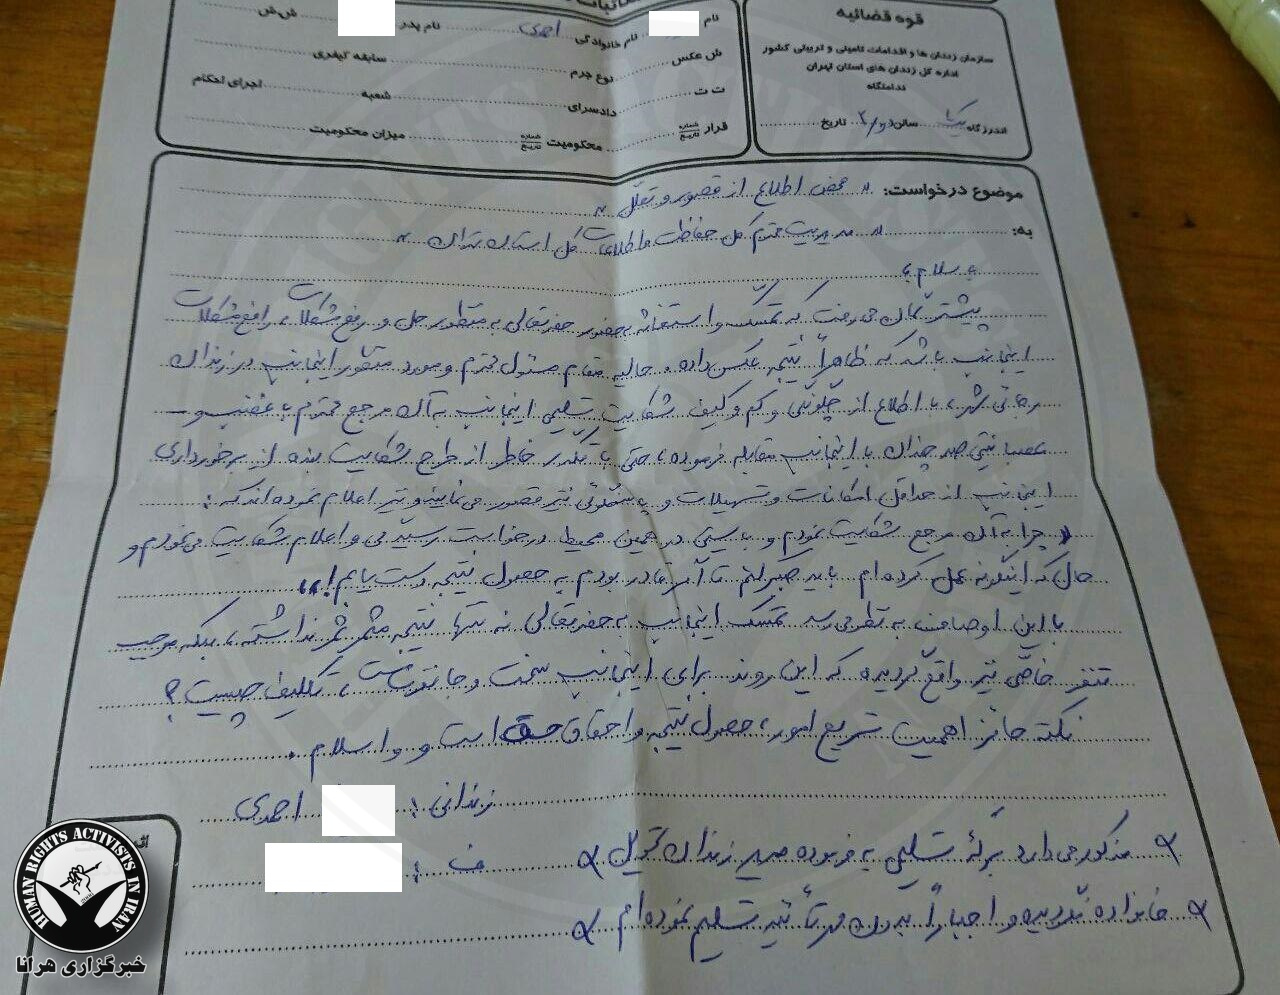 قوه قضائیه
سازمان زندان ها و اقدامات تامینی و تربیتی کشور
اداره کل زندان های استان تهران
ندامتگاه
اندرزگاه سالن تاریخ
نام نام خانوادگی احمدی نام پدر ش ش
ش عکس نوع جرم سابقه کیفری
ت ت دادسرای شعبه اجرای احکام
قرار شماره تاریخ محکومیت شماره تاریخ میزان محکومیت
موضوع درخواست: " محض اطلاع از قصور و تعلل "
به: " مدیریت محترم کل حفاظت و اطلاعات کل استان تهران "
" سلام "
پیشتر گمان می رفت که تمسک و استغاثه به حضور حضرتعالی به منظور حل و رفع مشکلات، رافع مشکلات
اینجانب باشد که ظاهراً نتیجه عکس داده. حالیه مقام مسئول محترم و مورد منظور اینجانب در زندان
رجائی شهر، با اطلاع از چگونگی و کم و کیف شکایت تسلیمی اینجانب به آن مرجع محترم با غضب و
عصبانیتی صد چندان با اینجانب مقابله فرموده، حتی با تکدر خاطر از طرح شکایت بنده از برخورداری
اینجانب از حداقل امکانات و تسهیلات و پاسخگوئی نیز قصور می نمایند و نیز اعلام نموده اند که:
" چرا به آن مرجع شکایت نمودم و بایستی در همین محیط درخواست رسیدگی و اعلام شکایت می نمودم و
حال که اینگونه عمل کرده ام باید صبر کنم تا اگر قادر بودم به حصول نتیجه دست یابم! "
با این اوصاف به نظر می رسد تمسک اینجانب به حضرتعالی نه تنها نتیجه مثمر ثمر نداشته، بلکه موجب
تنفر خاصی نیز واقع گردیده که این روند برای اینجانب سخت و جانفرساست، تکلیف چیست؟
نکته حائز اهمیت تسریع امور، حصول نتیجه و احقاق حق است و والسلام.
زندانی: احمدی
مذکور می دارد برگه تسلیمی به فرموده مدیر زندان تحویل
ف:
خانواده نگردیده و اجباراً بدون مهر تأیید تسلیم نموده ام
HUMAN RIGHTS ACTIVISTS IN IRAN
خبرگزاری هرانا